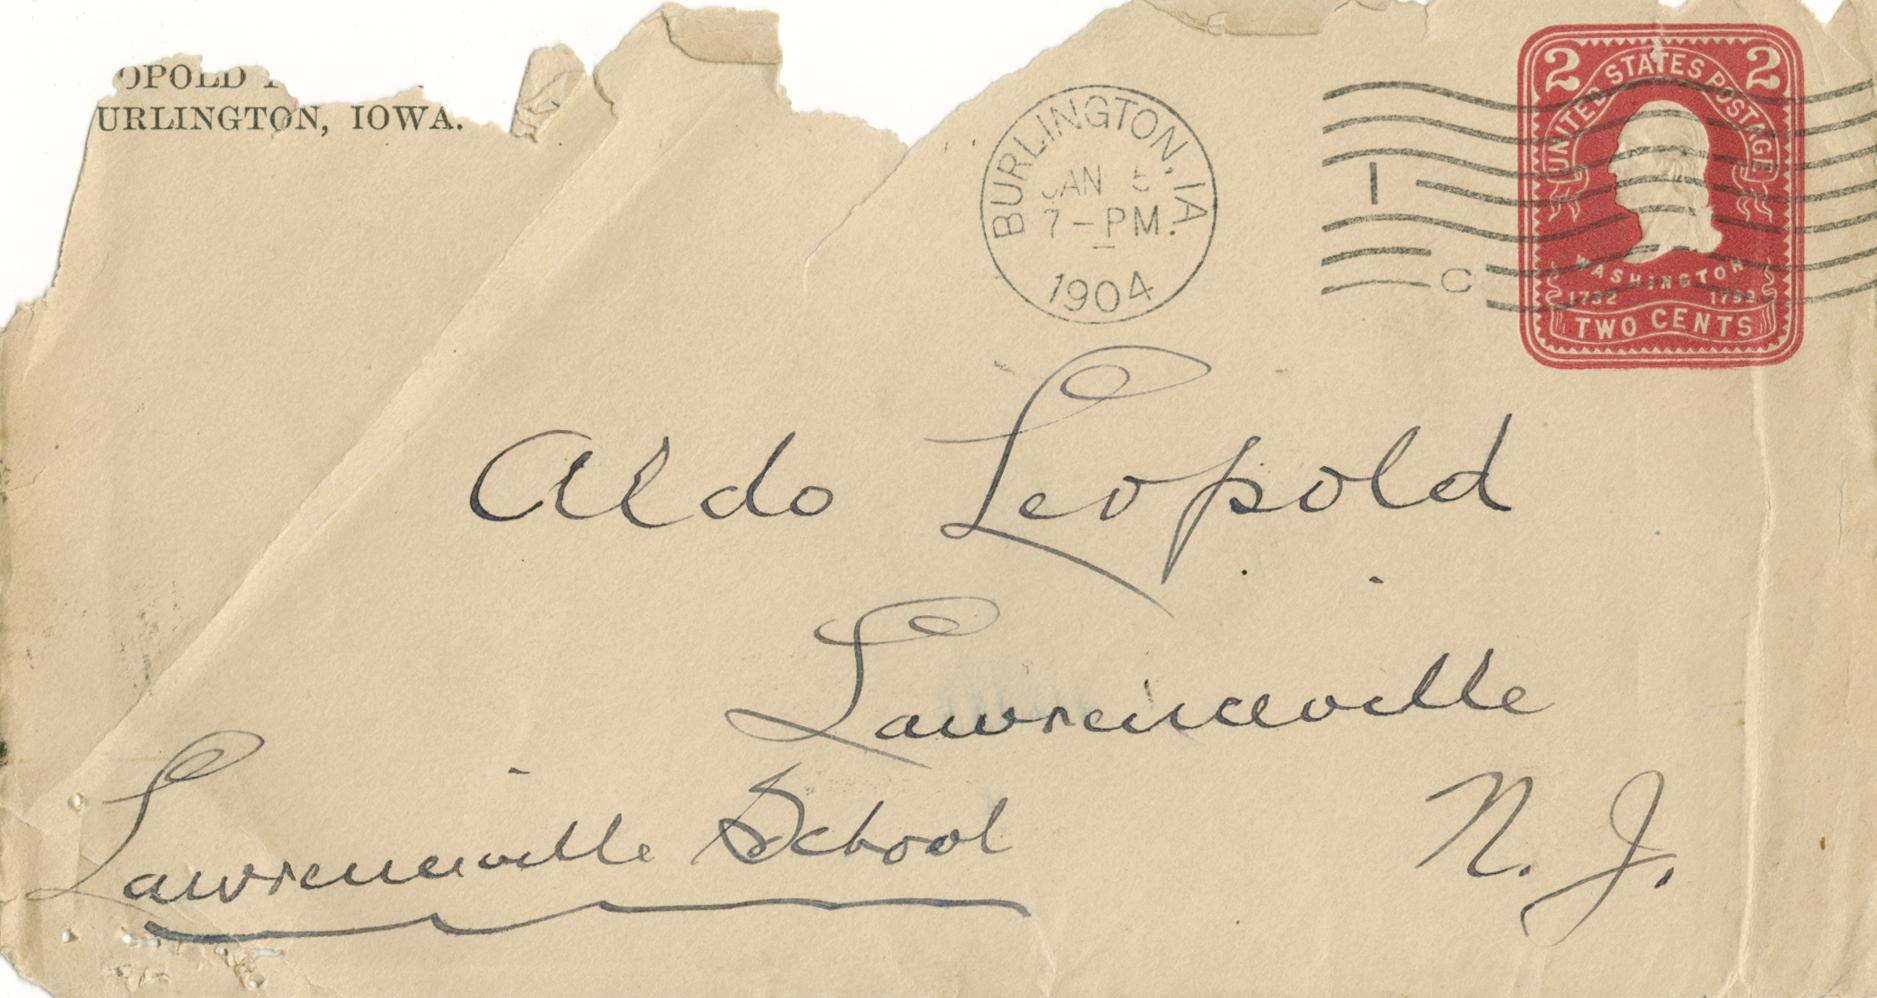 OPOLD
URLINGTON, IOWA.
BURLINGTON, IA.
JAN 5
7-PM
1904
1
C
2 2
UNITED STATES POSTAGE
WASHINGTON
1732 1799
TWO CENTS
Aldo Leopold
Lawrenceville
Lawrenceville School
N. J.